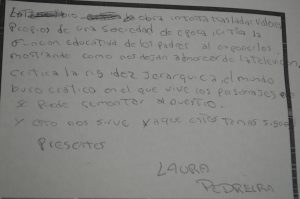 obra intenta trasladar valores
propios de una sociedad de epoca, critica la
funcion educativa de los padres al exponerlos
mostrando como nos dejan absorver de la television,
critica la rigidez jerarquica, el mundo
burocratico en el que vive los personajes
se puede comentar al nuestro.
Y esto nos sirve ya que estos temas siguen
presentes
LAURA
PEDREIRA